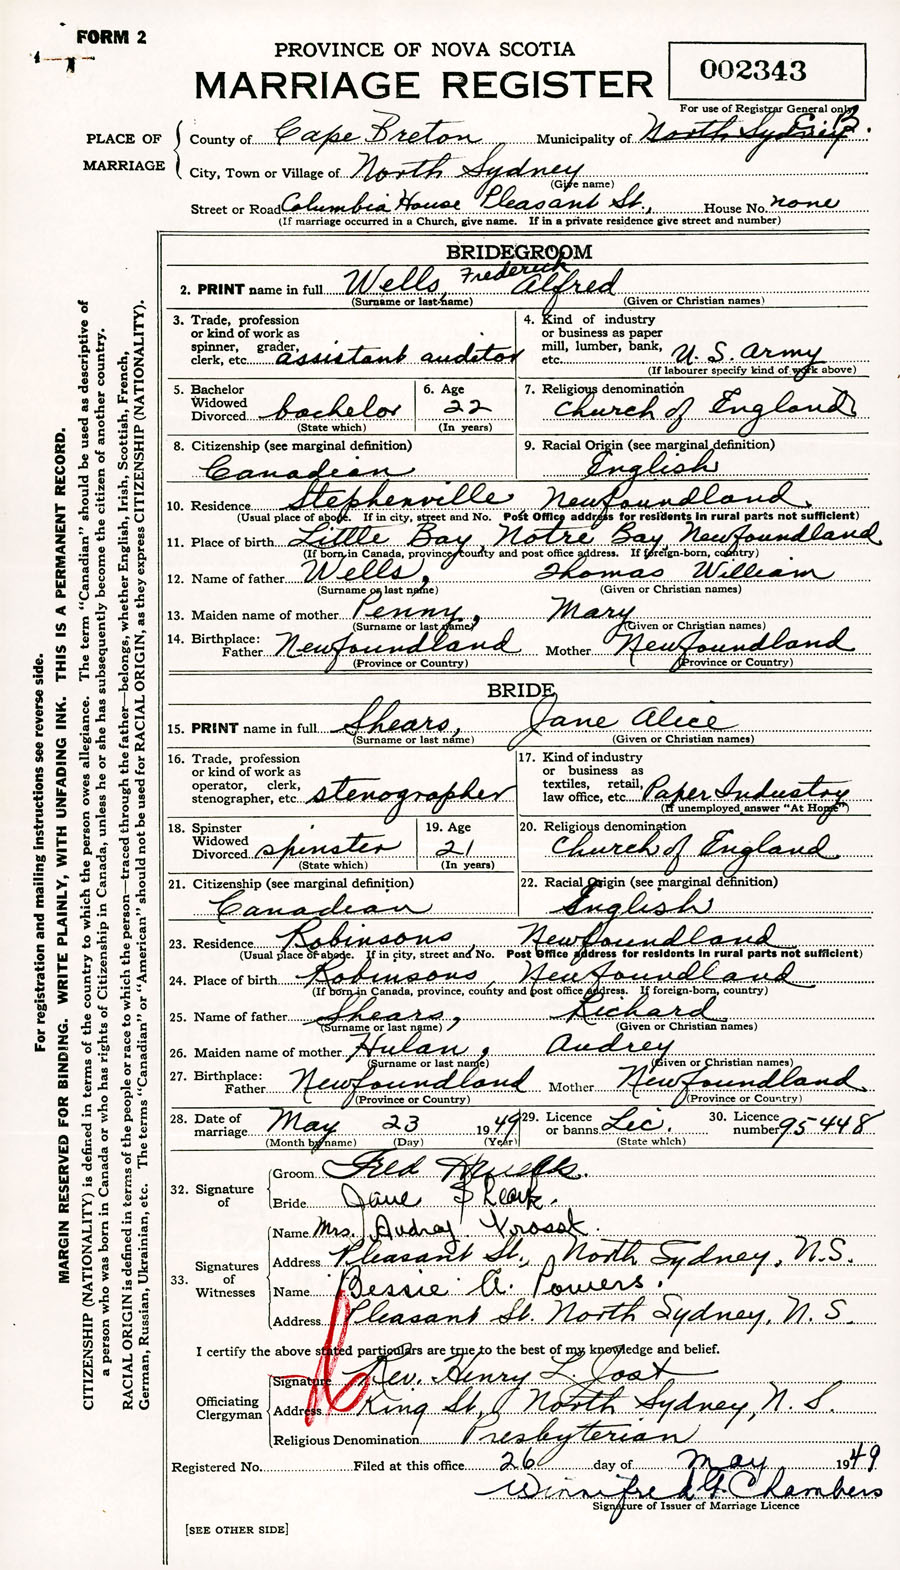 FORM 2
PROVINCE OF NOVA SCOTIA
MARRIAGE REGISTER
002343
For use of Registrar General only
PLACE OF MARRIAGE
County of Cape Breton Municipality of North Sydney
City, Town or Village of North Sydney
(Give name)
Street or Road Columbia House Pleasant St., House No. none
(If marriage occurred in a Church, give name. If in a private residence give street and number)
BRIDEGROOM
2. PRINT name in full Wells, Frederick Alfred
(Surname or last name) (Given or Christian names)
3. Trade, profession or kind of work as spinner, grader, clerk, etc. assistant auditor
4. Kind of industry or business as paper mill, lumber, bank, etc. U. S. Army
(If labourer specify kind of work above)
5. Bachelor Widowed Divorced bachelor
(State which)
6. Age 22
(In years)
7. Religious denomination Church of England
8. Citizenship (see marginal definition) Canadian
9. Racial Origin (see marginal definition) English
10. Residence Stephenville Newfoundland.
(Usual place of abode. If in city, street and No. Post Office address for residents in rural parts not sufficient)
11. Place of birth Little Bay, Notre Bay, Newfoundland
(If born in Canada, province, county and post office address. If foreign-born, country)
12. Name of father Wells, Thomas William
(Surname or last name) (Given or Christian names)
13. Maiden name of mother Penny, Mary
(Surname or last name) (Given or Christian names)
14. Birthplace: Father Newfoundland Mother Newfoundland
(Province or Country) (Province or Country)
BRIDE
15. PRINT name in full Shears, Jane Alice
(Surname or last name) (Given or Christian names)
16. Trade, profession or kind of work as operator, clerk, stenographer, etc. stenographer
17. Kind of industry or business as textiles, retail, law office, etc. Paper Industry
(If unemployed answer "At Home")
18. Spinster Widowed Divorced spinster
(State which)
19. Age 21
(In years)
20. Religious denomination Church of England
21. Citizenship (see marginal definition) Canadian
22. Racial Origin (see marginal definition) English
23. Residence Robinsons, Newfoundland
(Usual place of abode. If in city, street and No. Post Office address for residents in rural parts not sufficient)
24. Place of birth Robinsons, Newfoundland
(If born in Canada, province, county and post office address. If foreign-born, country)
25. Name of father Shears, Richard
(Surname or last name) (Given or Christian names)
26. Maiden name of mother Hulan, Audrey
(Surname or last name) (Given or Christian names)
27. Birthplace: Father Newfoundland Mother Newfoundland
(Province or Country) (Province or Country)
28. Date of marriage May 23 1949
(Month by name) (Day) (Year)
29. Licence or banns Lic.
(State which)
30. Licence number 95448
32. Signature of
Groom Fred
Bride Jane
33. Signatures of Witnesses
Name Mrs. Audrey
Address Pleasant St., North Sydney, N.S.
Name Bessie A. Powers.
Address Pleasant St. North Sydney, N. S.
I certify the above stated particulars are true to the best of my knowledge and belief.
Officiating Clergyman
Signature Rev. Henry L. Jost
Address King St., North Sydney, N. S.
Religious Denomination Presbyterian
Registered No. Filed at this office 26 day of May 1949
Winnifred G. Chambers
Signature of Issuer of Marriage Licence
[SEE OTHER SIDE]
For registration and mailing instructions see reverse side.
MARGIN RESERVED FOR BINDING. WRITE PLAINLY, WITH UNFADING INK. THIS IS A PERMANENT RECORD.
CITIZENSHIP (NATIONALITY) is defined in terms of the country to which the person owes allegiance. The term "Canadian" should be used as descriptive of
a person who was born in Canada or who has rights of Citizenship in Canada, unless he or she has subsequently become the citizen of another country.
RACIAL ORIGIN is defined in terms of the people or race to which the person—traced through the father—belongs, whether English, Irish, Scottish, French,
German, Russian, Ukrainian, etc. The terms "Canadian" or "American" should not be used for RACIAL ORIGIN, as they express CITIZENSHIP (NATIONALITY).